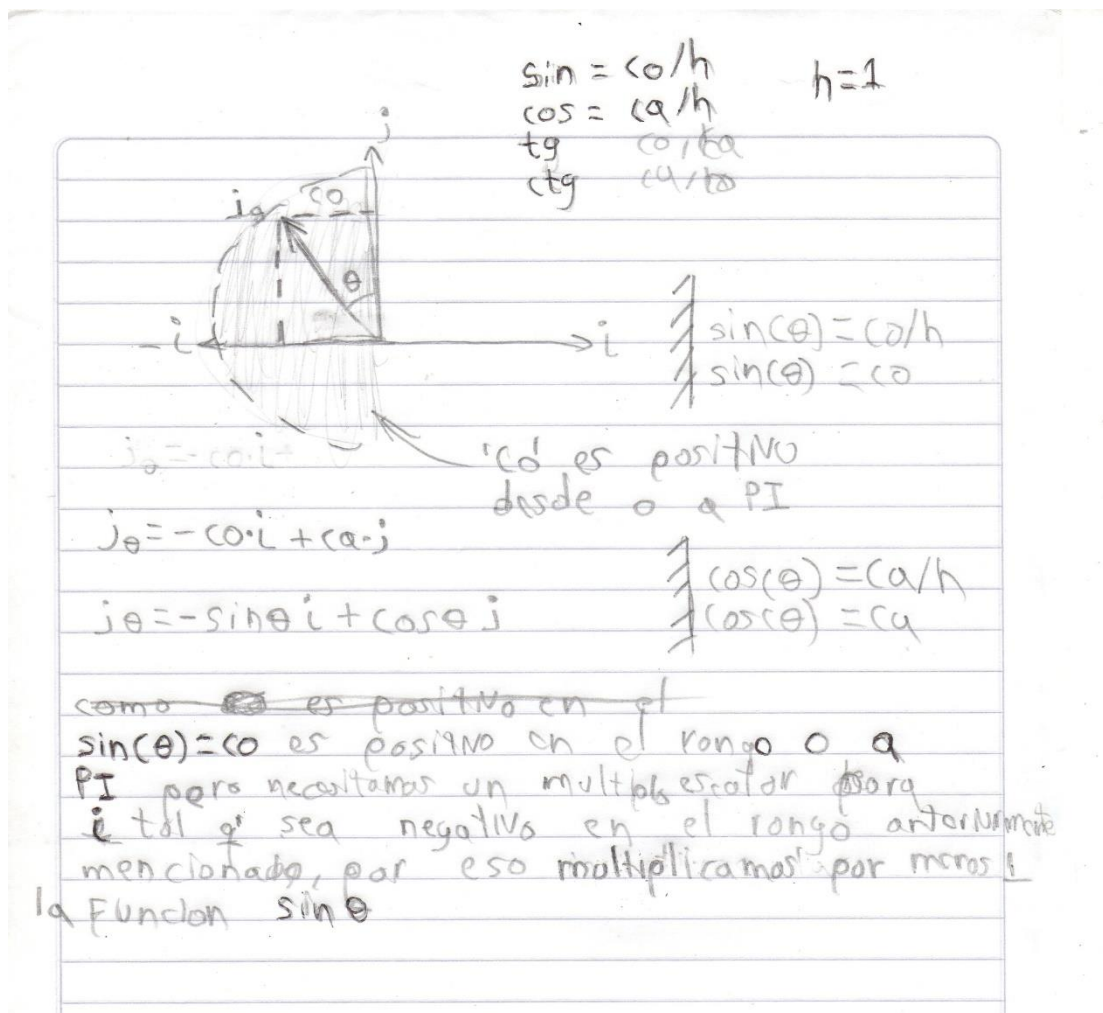 sin = co/h h=1
cos = ca/h
tg co/ca
ctg ca/co
j
jθ co
θ
-i i
sin(θ) = co/h
sin(θ) = co
jθ=-co·i+
'co' es positivo
desde 0 a PI
jθ=-co·i+ca·j
cos(θ) = ca/h
cos(θ) = ca
jθ=-sinθ i + cosθ j
como es positivo en el
sin(θ)=co es positivo en el rango 0 a
PI pero necesitamos un multiplo escalar para
i tal q' sea negativo en el rango anteriormente
mencionado, por eso multiplicamos por menos 1
la Funcion sin θ